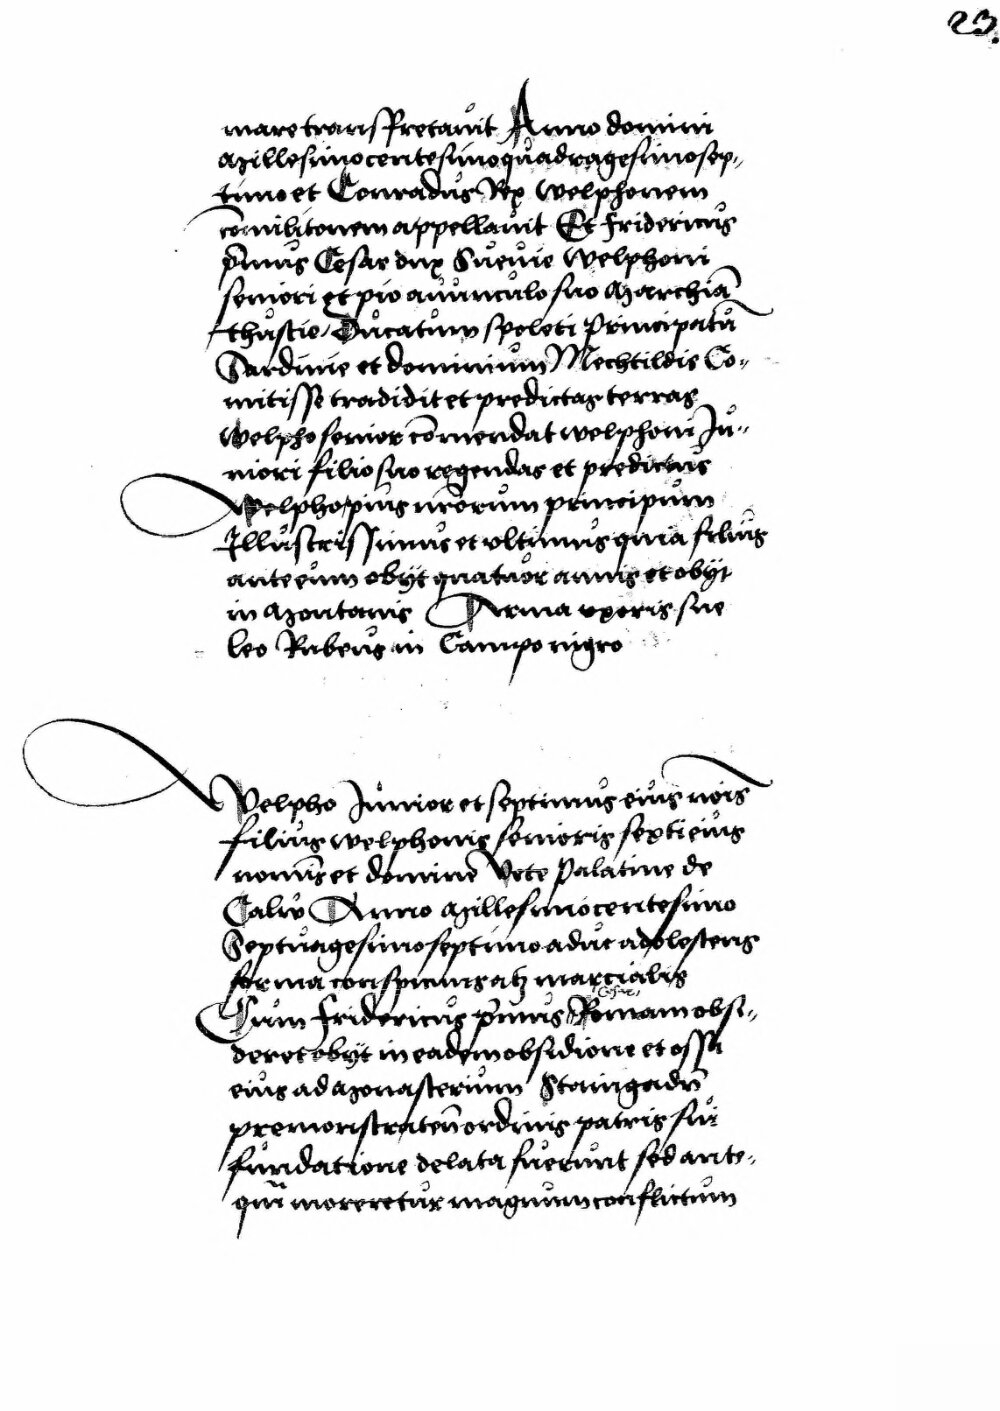 23.
mare transfretauit Anno domini
Millesimocentesimoquadragesimosep-
timo et Conradus Rex Welphonem
co̅militonem appellauit Et fridericus
p̅mus Cesar dux Sueuie Welphoni
seniori et pio auunculo suo Marchia̅
thuscie, Ducatum spoleti principatu̅
Sardinie et dominium Mechtildis Co-
mitisse tradidit et predictas terras
Welpho senior co̅mendat welphoni Ju-
niori filio suo regendas et predictus
Welpho pius nr̅orum principum
Illustrissimus et vltimus quia filius
ante eum obijt quatuor annis et obijt
in Montanis Arma vxoris sue
leo Rubeus in Campo nigro
Welpho Junior et septimus eius no̅is
filius welphonis senioris sexti eius
nominis et domine Vte palatine de
Calw Anno Millesimocentesimo
Septuagesimoseptimo aduc adolescens
forma conspicuus atq marcialis
Cesar,
Cum fridericus p̅mus Romam obsi-
deret obijt in eadem obsidione et ossa
eius ad Monasterium Staingadn̅
premonstraten̅ ordinis patris sui
fundatione delata fuerunt sed ante-
qua̅ moreretur magnum conflictum